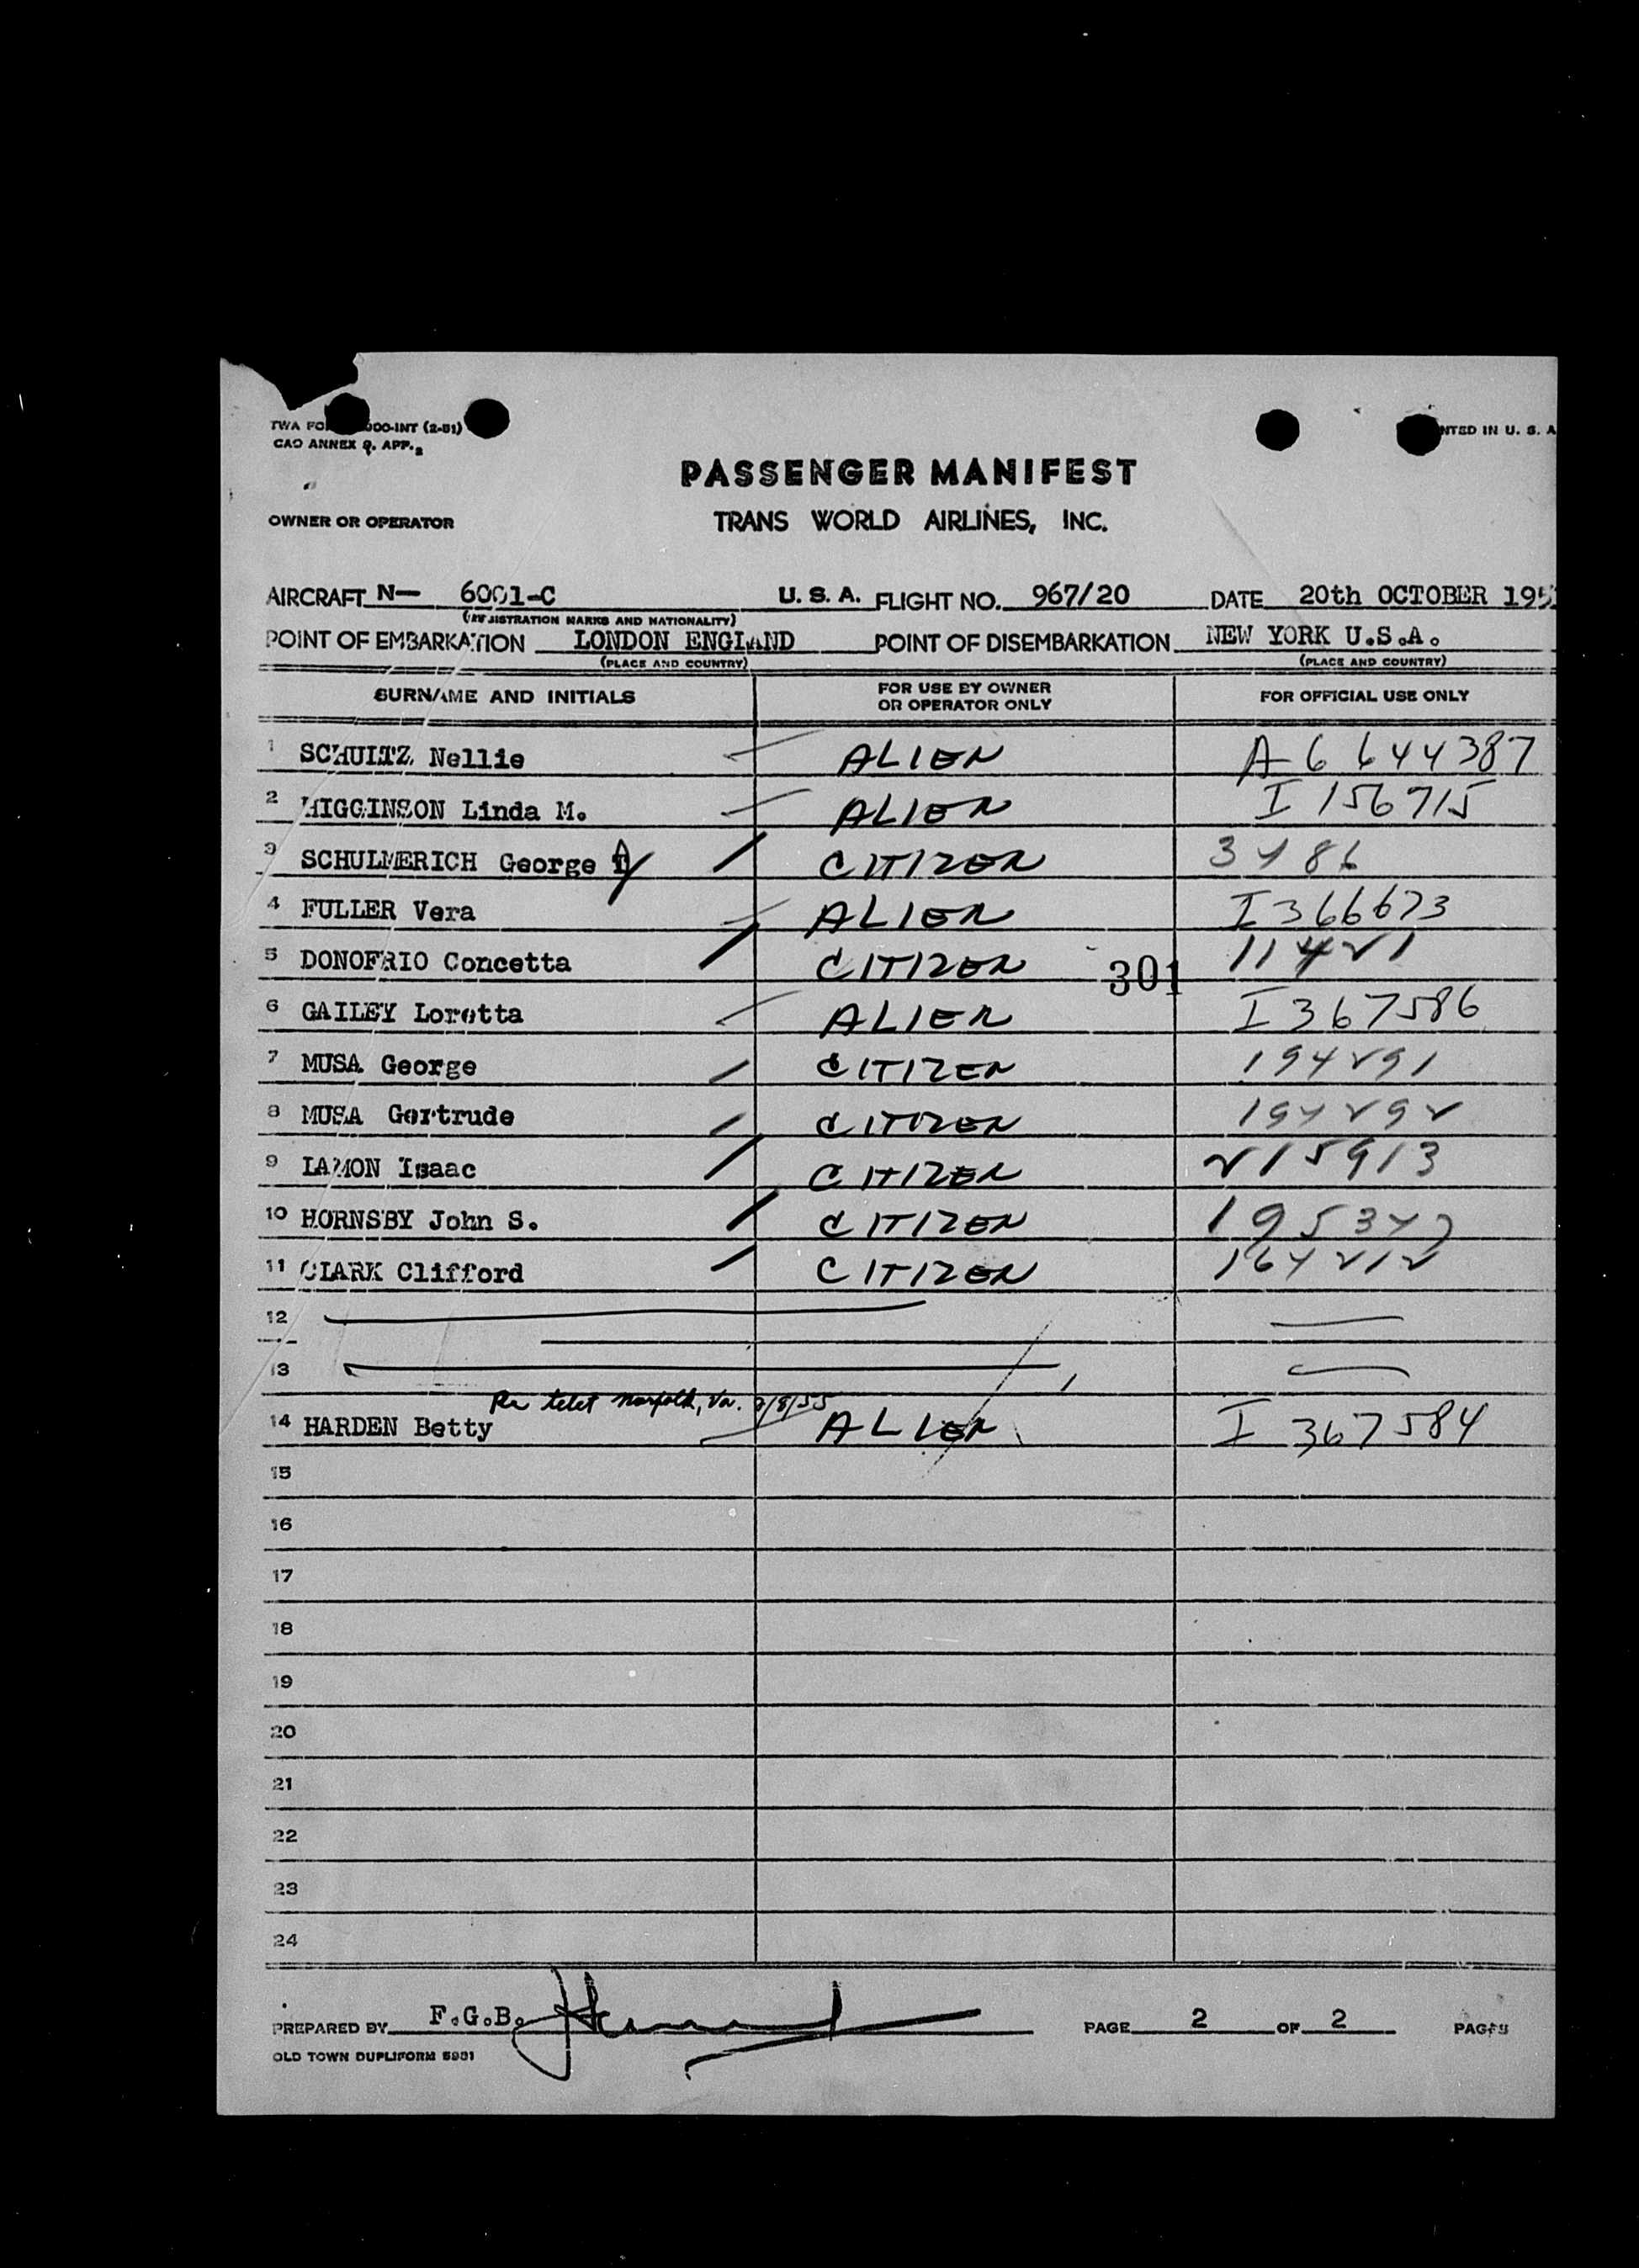 TWA FO 000-INT (2-51)
CAO ANNEX 9, APP. 2
NTED IN U. S. A
PASSENGER MANIFEST
OWNER OR OPERATOR TRANS WORLD AIRLINES, INC.
AIRCRAFT N— 6001-C U. S. A. FLIGHT NO. 967/20 DATE 20th OCTOBER 195
(REGISTRATION MARKS AND NATIONALITY)
POINT OF EMBARKATION LONDON ENGLAND POINT OF DISEMBARKATION NEW YORK U.S.A.
(PLACE AND COUNTRY) (PLACE AND COUNTRY)
SURNAME AND INITIALS FOR USE BY OWNER OR OPERATOR ONLY FOR OFFICIAL USE ONLY
1 SCHULTZ Nellie ALIEN A6 644387
2 HIGGINSON Linda M. ALIEN I 156715
3 SCHULMERICH George CITIZEN 3486
4 FULLER Vera ALIEN I 366673
5 DONOFRIO Concetta CITIZEN 11421
301
6 GAILEY Loretta ALIEN I 367586
7 MUSA George CITIZEN 194291
8 MUSA Gertrude CITIZEN 194292
9 LAMON Isaac CITIZEN 215913
10 HORNSBY John S. CITIZEN
11 CLARK Clifford CITIZEN 164212
12
13
Re telet Norfolk, Va. /8/55
14 HARDEN Betty ALIEN I 367584
15
16
17
18
19
20
21
22
23
24
PREPARED BY F.G.B. PAGE 2 OF 2 PAGES
OLD TOWN DUPLIFORM 5931